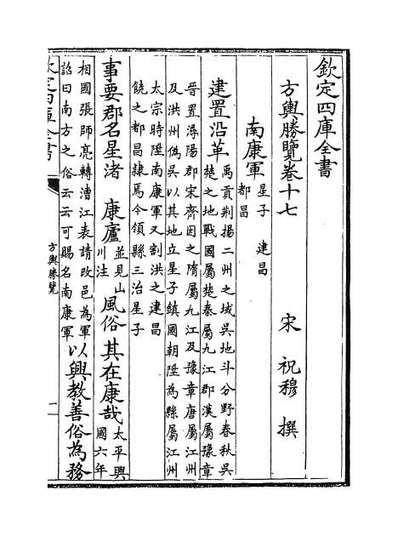 欽定四庫全書
方輿勝覽卷十七
宋 祝穆 撰
南康軍
星子 建昌
都昌
建置沿革
禹貢荆揚二州之域吳地斗分野春秋吳
楚之地戰國屬楚秦屬九江郡漢屬豫章
晋置潯陽郡宋齊因之隋屬九江及豫章唐屬江州
及洪州偽吳以其地立星子鎮國朝陞為縣屬江州
太宗時陞南康軍又割洪之建昌
饒之都昌隸焉今領縣三治星子
事要郡名星渚 康廬
並見山
川注
風俗其在康哉
太平興
國六年
相國張師亮轉漕江表請改邑為軍
詔曰南方之俗云云可賜名南康軍
以興教善俗為務
欽定四庫全書
方輿勝覽
一